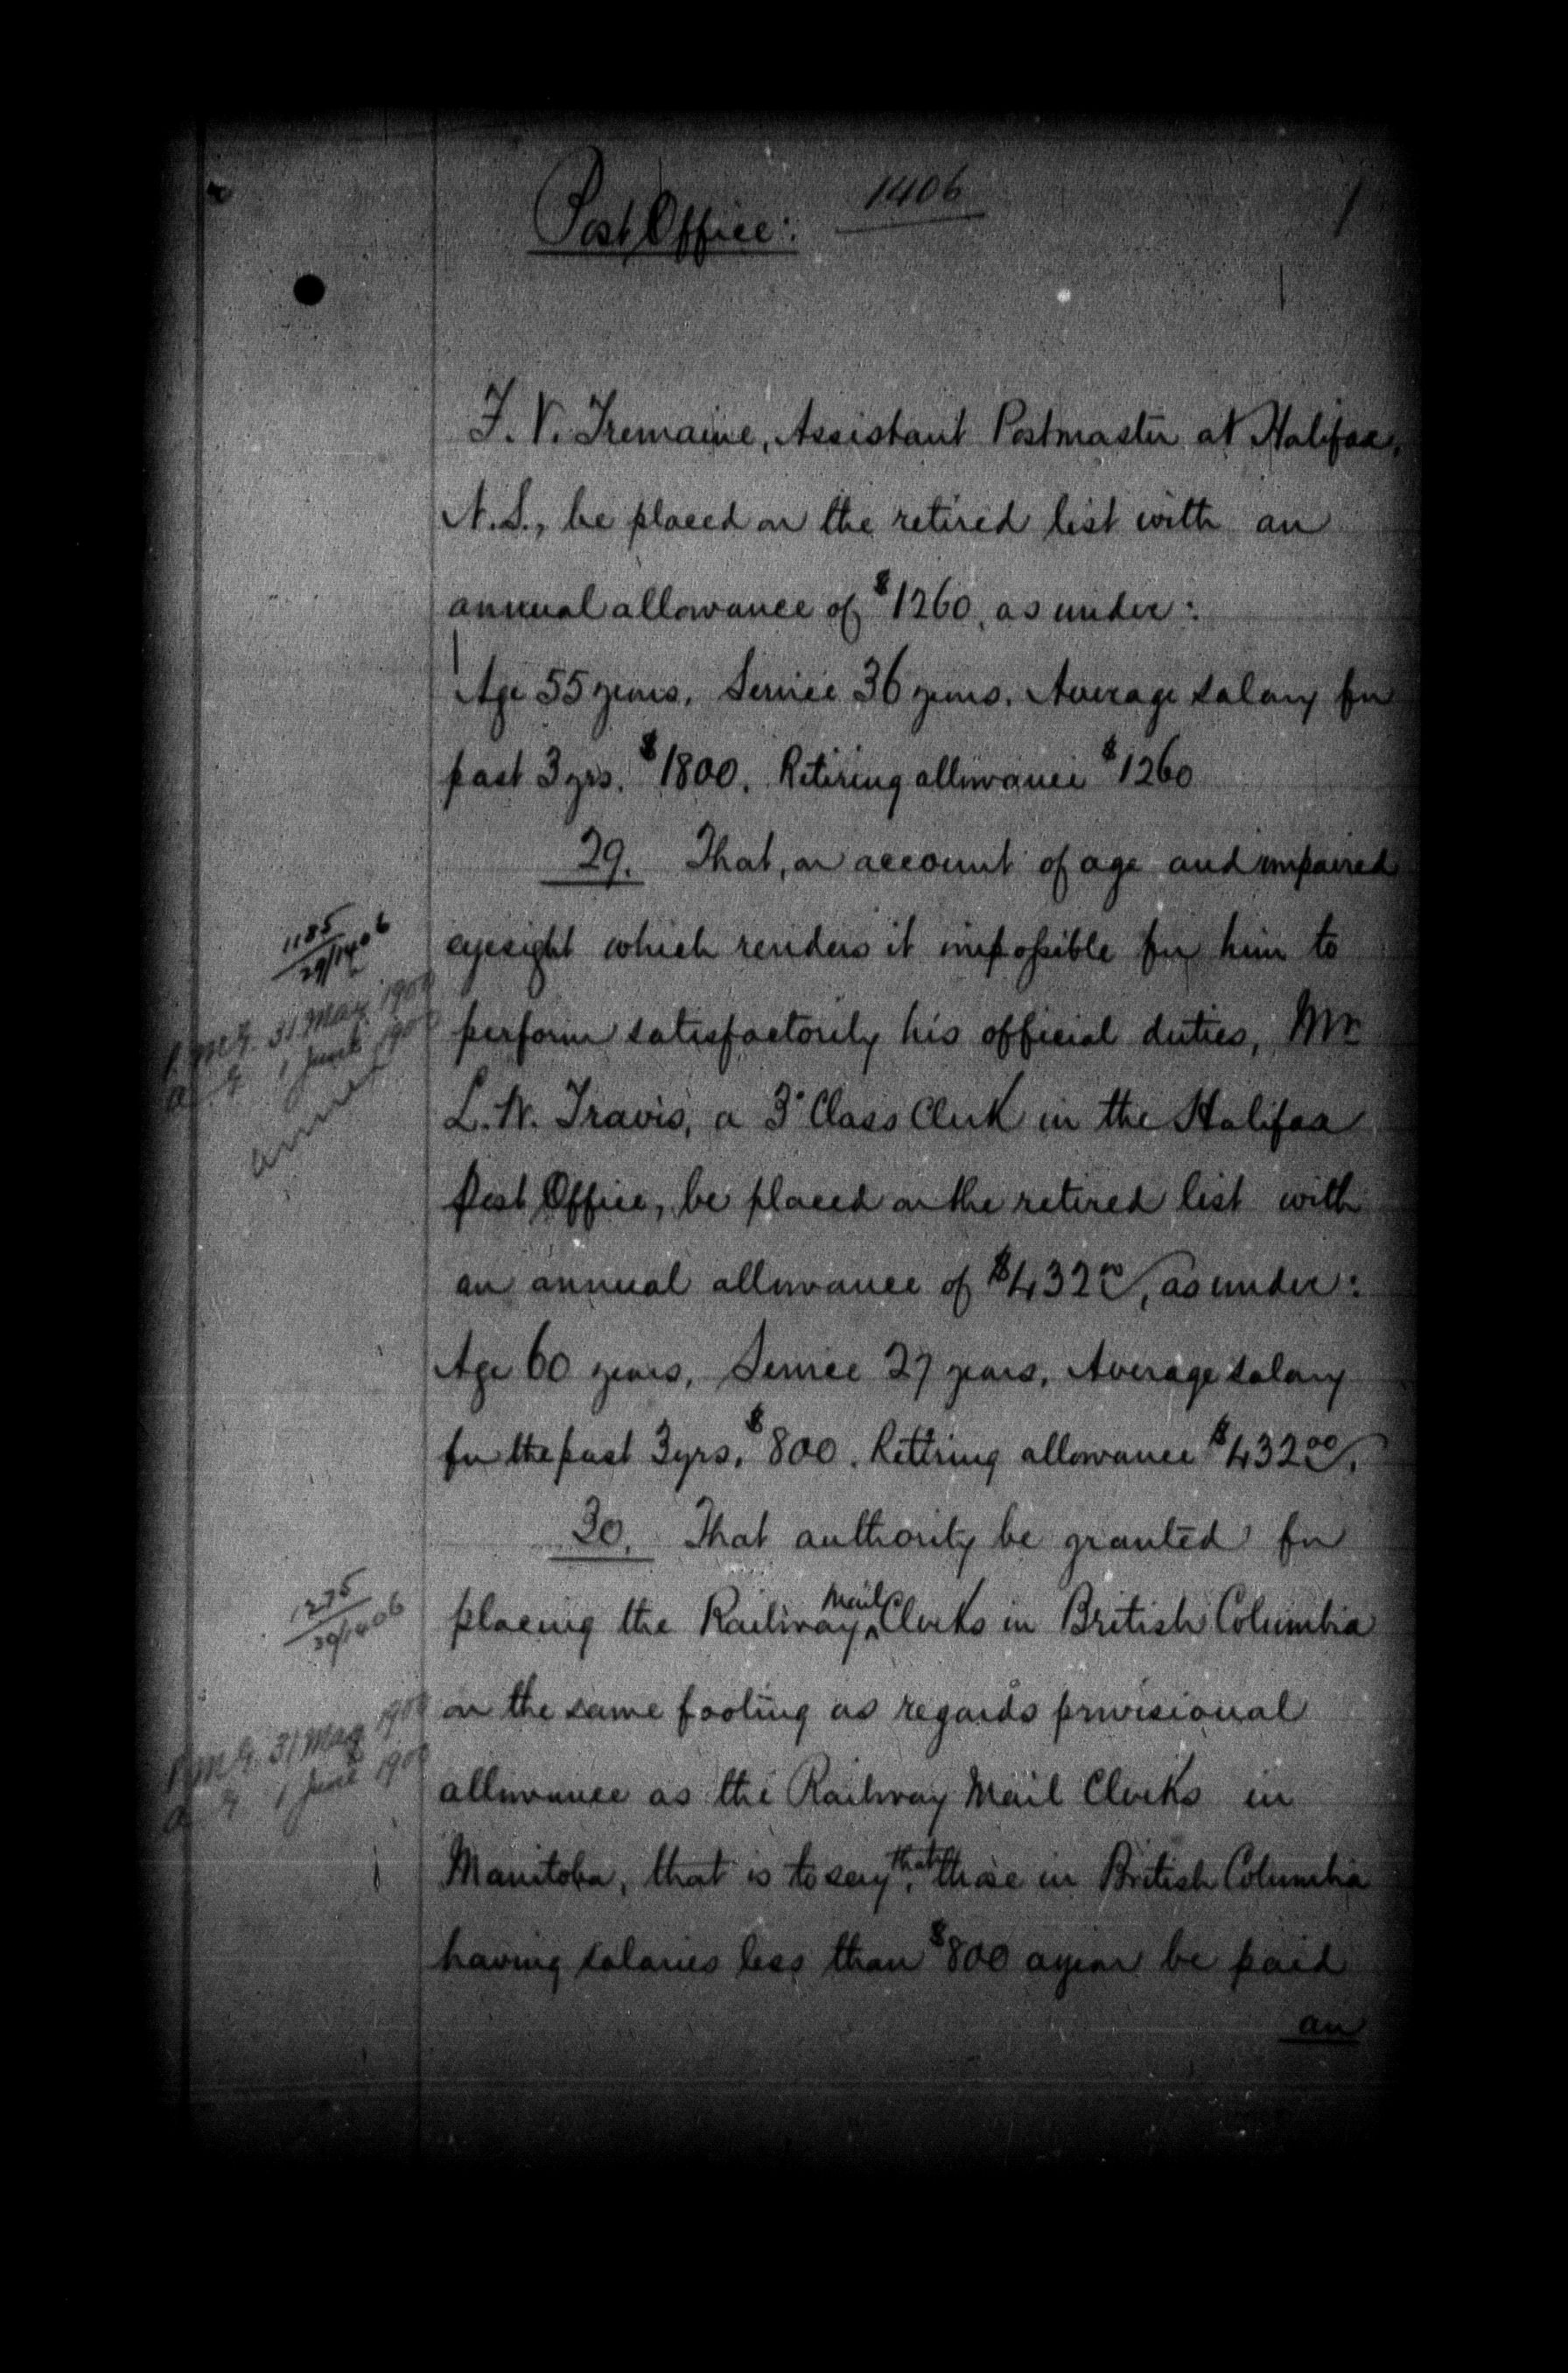 Post Office: 1406
F. V. Tremaine, Assistant Postmaster at Halifax,
N.S., be placed on the retired list with an
annual allowance of $1260, as under:
Age 55 years, Service 36 years. Average salary for
past 3 yrs. $1800. Retiring allowance $1260
29. That, on account of age and impaired
eyesight which renders it impossible for him to
perform satisfactorily his official duties, Mr
L. W. Travis, a 3° Class Clerk in the Halifax
Post Office, be placed on the retired list with
an annual allowance of $432.00, as under:
Age 60 years, Service 27 years, Average salary
for the past 3 yrs. $800. Retiring allowance $432.00.
30. That authority be granted for
placing the Railway Mail Clerks in British Columbia
on the same footing as regards provisional
allowance as the Railway Mail Clerks in
Manitoba, that is to say, that those in British Columbia
having salaries less than $800 a year be paid
an
1185
29/1406
P.M.G. 31 May 1900
1 June 1900
1275
30/1406
P.M.G. 31 May 1900
1 June 1900